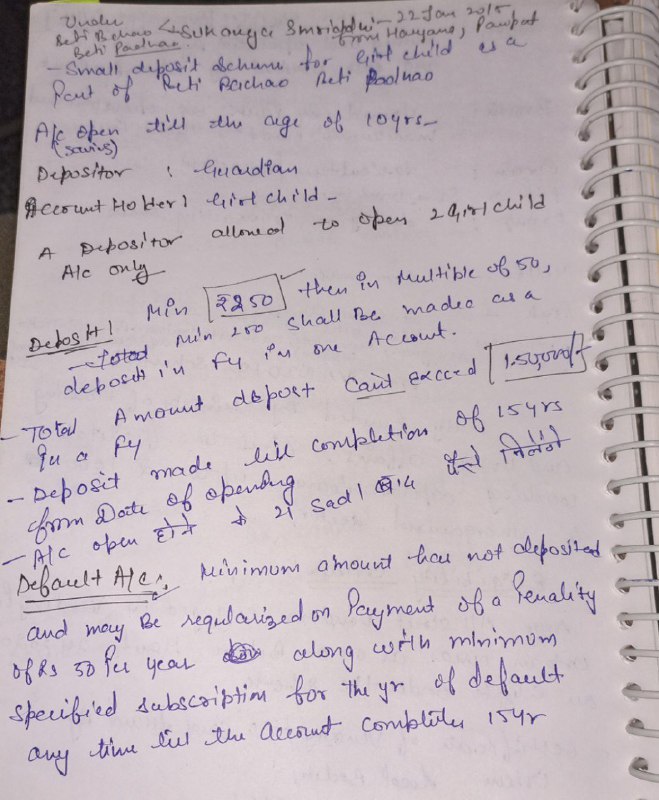 Under
Beti Bchao < Sukanya Smriddhi - 22 Jan 2015
Beti Padhao. from Haryana, Panipat
- Small deposit Scheme for Girl child as a
Part of Beti Bachao Beti Padhao
A/c open till the age of 10yrs-
(savings)
Depositor : Guardian
Account Holder : Girl Child -
A Depositor allowed to open 2 Girl child
A/c only
Deposit : Min ₹250 then in multiple of 50,
- Total Min 250 shall Be madee as a
deposit in Fy in one Account.
- Total Amount deposit Can't Exceed 1.50,000/-
In a Fy
- Deposit made till completion of 15yrs
from Date of opening
- A/c open होने के 21 Sadl बाद पैसे मिलेंगे
Default A/c : Minimum amount has not deposited
and may Be regularized on Payment of a Penality
of Rs 50 Per year along with minimum
specified subscription for the yr of default
any time till the Account completes 15yr